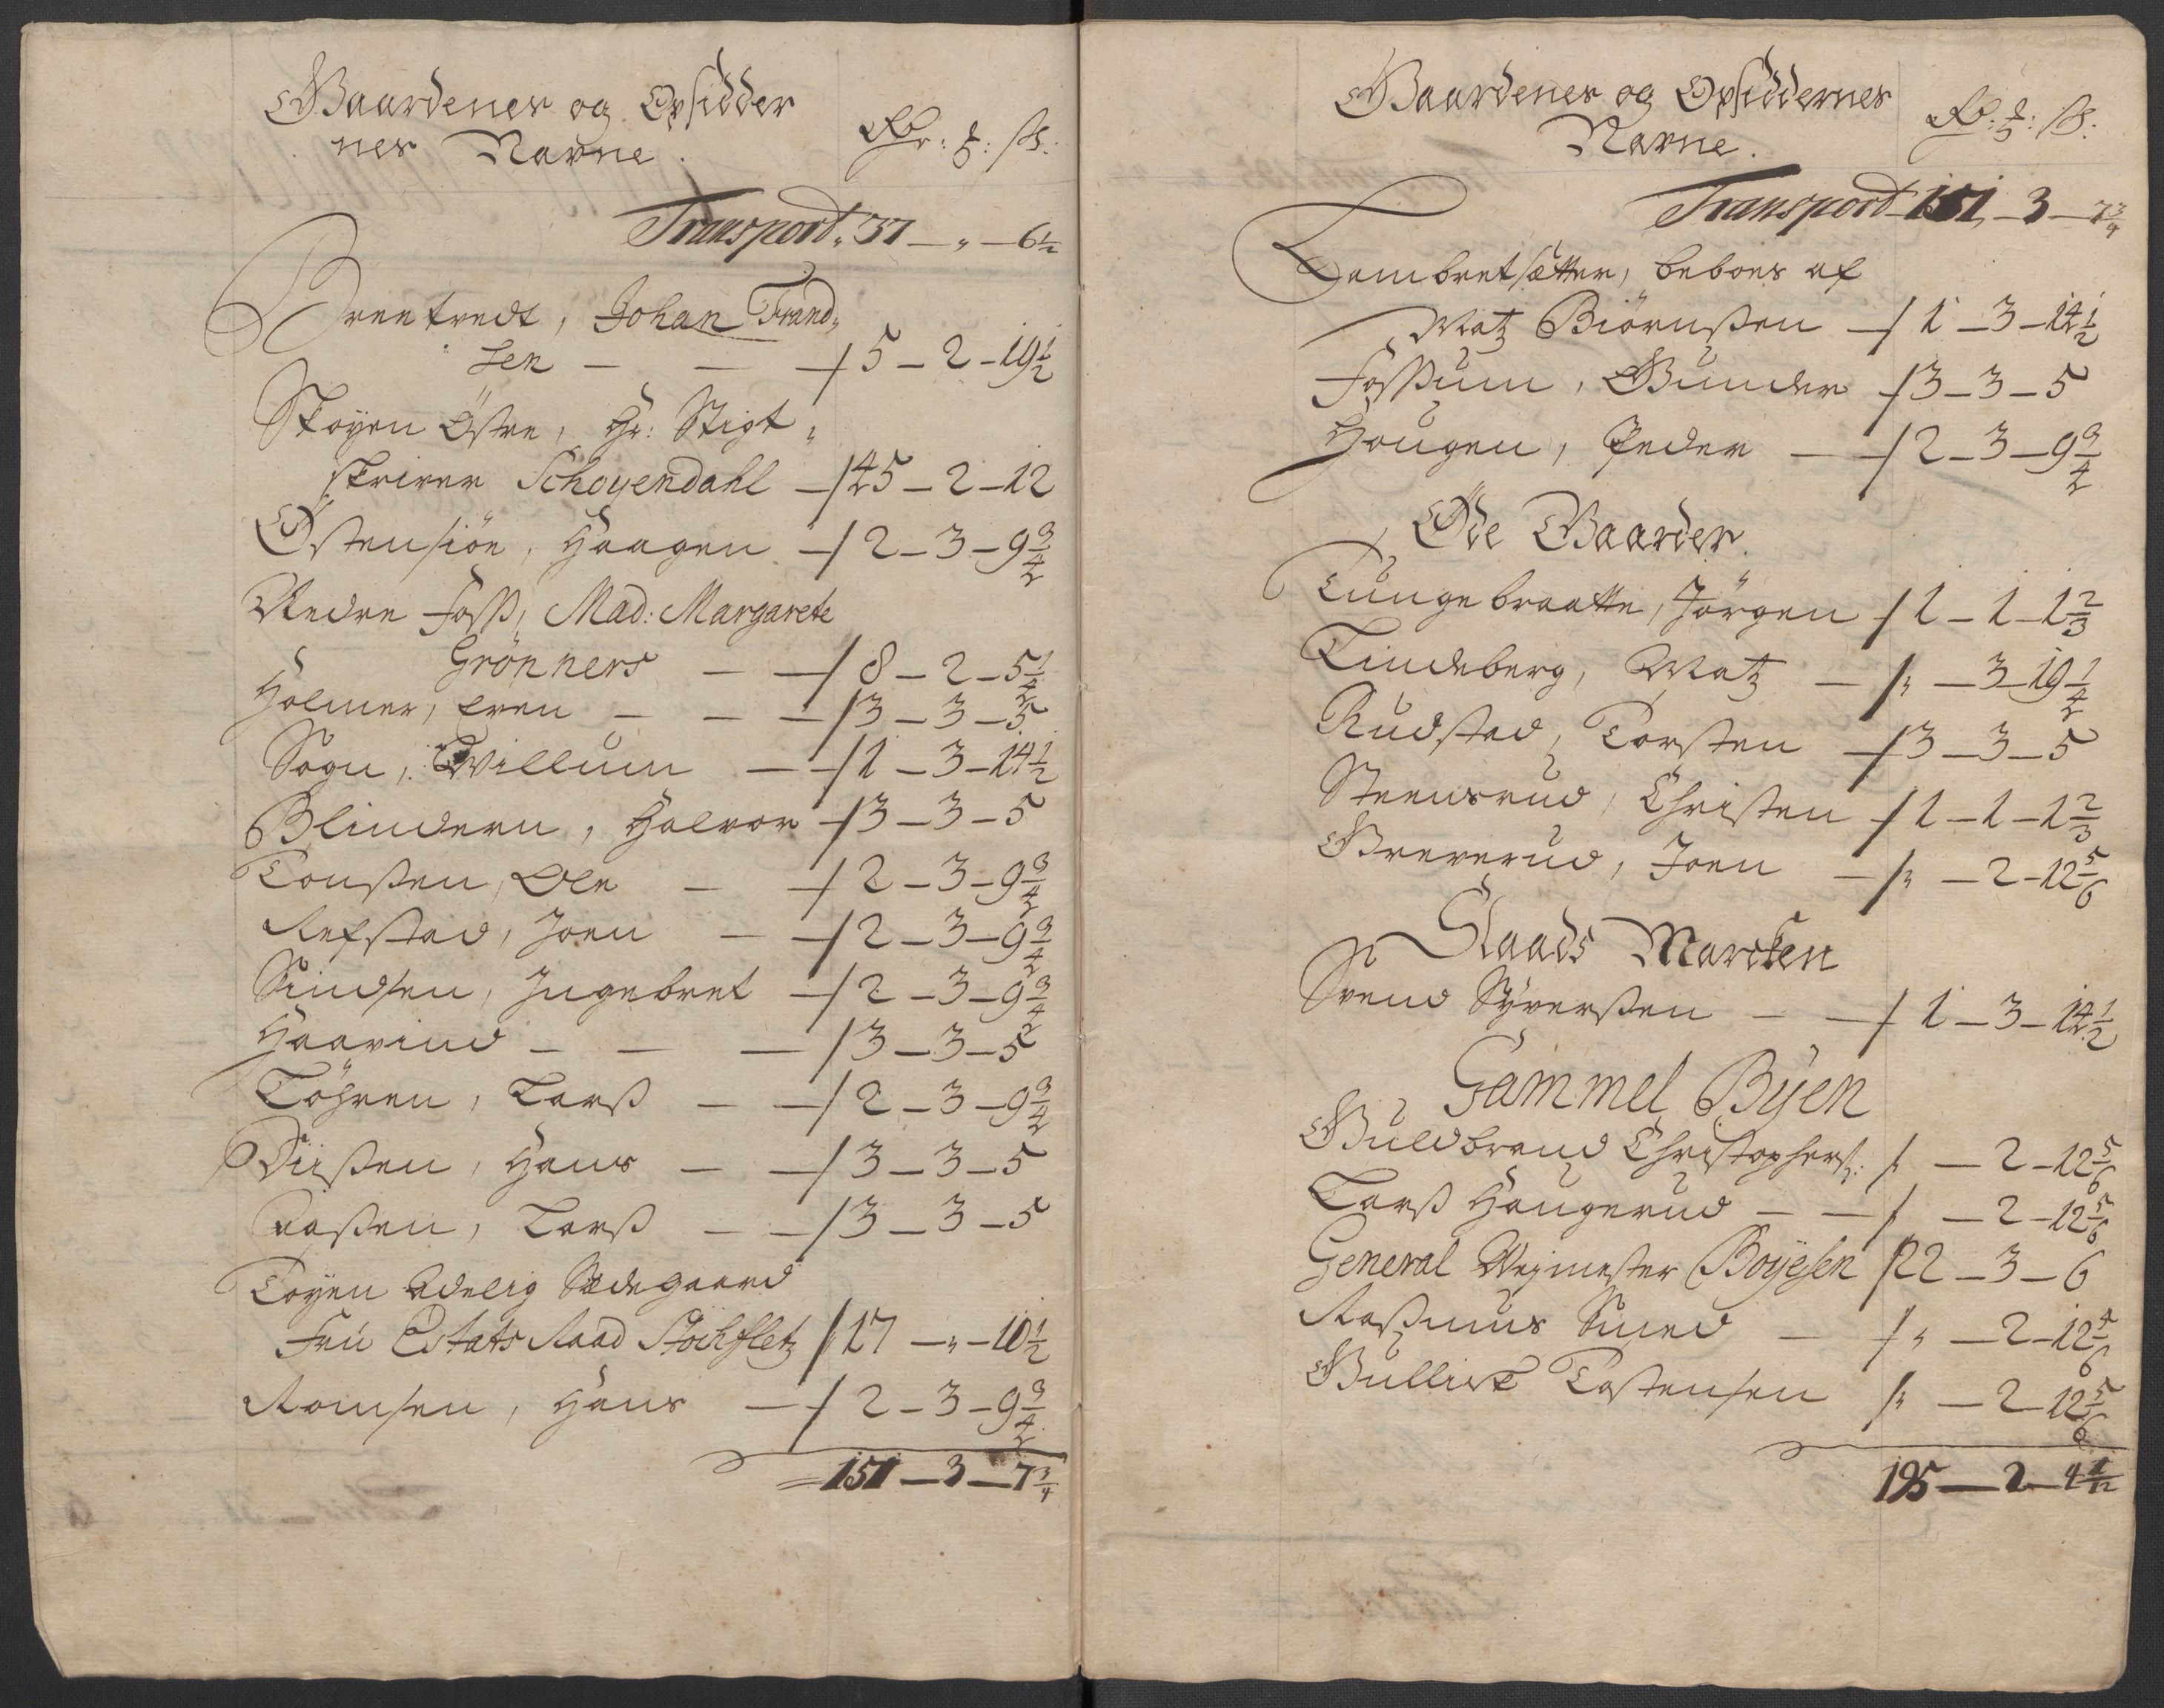 Gaardenes og Opsidder
nes Navne. Rdr: ort: ß:
Transport „ 37 — „ — 6 1/2
Breetvedt, Johan Frand„
sen — — — 5 — 2 — 19 1/2
Skøyen Østre, Hr: Stigt„
skriver Schøyendahl — 45 — 2 — 12
Østensiön, Haagen — 2 — 3 — 9 3/4
Nedre Foss, Mad: Margarete
Grönners — — 8 — 2 — 5 1/4
Holmen, Even — — — 3 — 3 — 5
Sogn, Willum — — 1 — 3 — 14 1/2
Blindern, Halvor — 3 — 3 — 5
Tonßen, Ole — — 2 — 3 — 9 3/4
Refstad, Joen — — 2 — 3 — 9 3/4
Sindsen, Ingebret — 2 — 3 — 9 3/4
Haavind — — — 3 — 3 — 5
Löhren, Larß — — 2 — 3 — 9 3/4
Diißen, Hans — — 3 — 3 — 5
Larß — — 3 — 3 — 5
Toyen Adelig Sædegaard
Fru Etats Raad Stöckfletz 17 — „ — 10 1/2
Romsen, Hans — — 2 — 3 — 9 3/4
151 — 3 — 7 3/4
Gaardenes og Opsiddernes
Navne. Rd: ort: ß:
Transport 151 — 3 — 7 3/4
Lambretsætter, beboes af
Matz Biörnßen — 1 — 3 — 14 1/2
Foßum, Gunder — 3 — 3 — 5
Hougen, Peder — — 2 — 3 — 9 3/4
Øde Gaarder.
Lungebraatte, Jörgen — 1 — 1 — 1 2/3
Lindeberg, Matz — „ — 3 — 19 1/4
Rudstad, Torsten — 3 — 3 — 5
Steensrud, Christen — 1 — 1 — 1 2/3
Greverud, Joen — „ — 2 — 12 5/6
Slaads Marcken
Svend Syverßen — — 1 — 3 — 14 1/2
Gammel Byen
Guldbrand Christophers: — 2 — 12 5/6
Larß Haugerud — — — 2 — 12 5/6
General Vejmester Boyesen 22 — 3 — 6
Rasmus Smed — „ — 2 — 12 5/6
Gullick Tostensen „ — 2 — 12 5/6
195 — 2 — 4 1/12